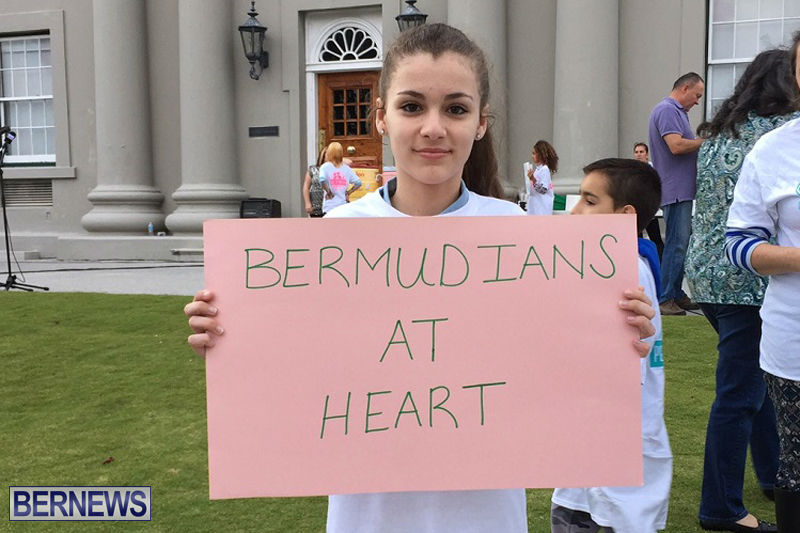 BERMUDIANS
AT
HEART
BERNEWS